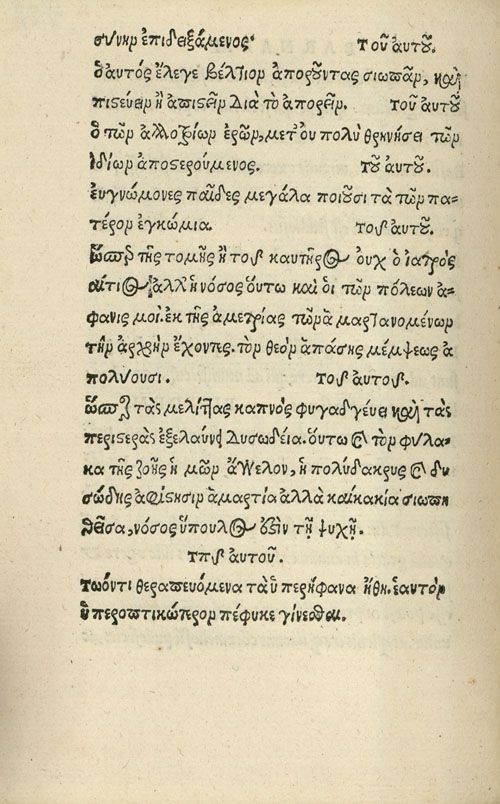 συνην ἐπιδειξάμενος· Τοῦ αὐτοῦ.
ὁ αὐτός ἔλεγε βέλτιον ἀποροῦντας σιωπᾶν, καὶ
πιστεύειν ἢ ἀπιστεῖν Διὰ τὸ ἀπορεῖν. Τοῦ αὐτοῦ
ὁ τῶν ἀλλοτρίων ἐρῶν, μετ' οὐ πολὺ θρηνήσει τῶν
ἰδίων ἀποστερούμενος. τοῦ αὐτοῦ.
ἐυγνώμονες παῖδες μεγάλα ποιοῦσι τὰ τῶν πα-
τέρον ἐγκώμια. τοῦ αὐτοῦ.
ὥσπερ τῆς τομῆς ἢ τοῦ καυτῆρος οὐχ ὁ ἰατρὸς
αἴτιος ἀλλ' ἡ νόσος οὕτω καὶ οἱ τῶν πόλεων ἀ-
φανισμοί. ἐκ τῆς ἀμετρίας τῶν ἁμαρτανομένων
τὴν ἀρχὴν ἔχοντες. τὸν θεὸν ἁπάσης μέμψεως ἀ
πολύουσι. τοῦ αὐτοῦ.
ὥσπερ τὰς μελίττας καπνὸς φυγαδεύει καὶ τὰς
περιστερὰς ἐξελαύνει Δυσωδεία. οὕτω καὶ τὸν φύλα-
κα τῆς ζωῆς ἡμῶν ἄγγελον, ἡ πολύδακρυς καὶ δυ
σώδης ἀφίστησιν ἁμαρτία ἀλλὰ καὶ κακία σιωπη
θεῖσα, νόσος ὕπουλος ἐστὶν τῇ ψυχῇ.
τοῦ αὐτοῦ.
τῶ ὄντι θεραπευόμενα τὰ ὑπερήφανα ἤθη. ἑαυτὸν
ὑπεροπτικώτερον πέφυκε γίνεσθαι.